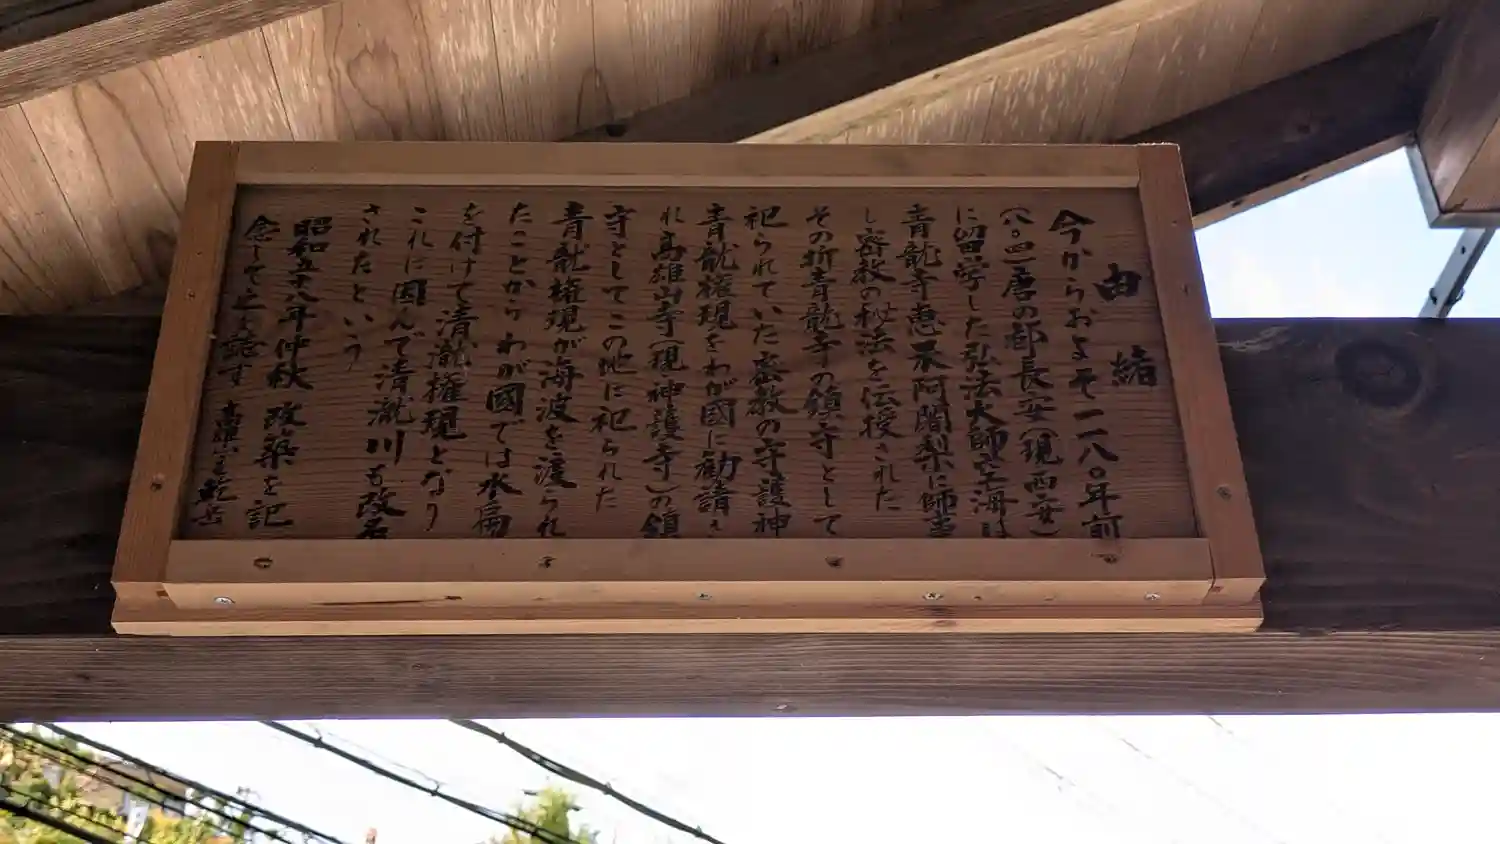 由緒
今からおよそ一一八〇年前
(八〇四)唐の都長安(現西安)
に留学した弘法大師空海は
青龍寺恵果阿闍梨に師事
し密教の秘法を伝授された
その折青龍寺の鎮守として
祀られていた密教の守護神
青龍権現をわが國に勧請さ
れ高雄山寺(現神護寺)の鎮
守としてこの地に祀られた
青龍権現が海波を渡られ
たことからわが國では水扁
を付けて清瀧権現となり
これに因んで清瀧川も改名
されたという
昭和五十八年仲秋 改築を記
念して之を誌す